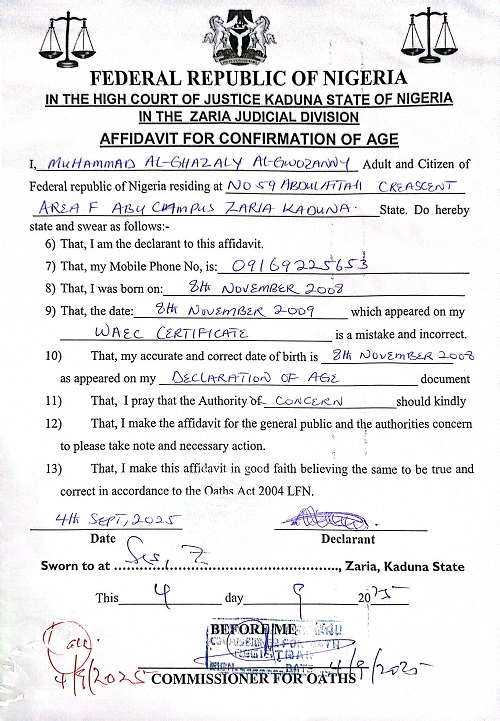 FEDERAL REPUBLIC OF NIGERIA
IN THE HIGH COURT OF JUSTICE KADUNA STATE OF NIGERIA
IN THE ZARIA JUDICIAL DIVISION
AFFIDAVIT FOR CONFIRMATION OF AGE
I, MUHAMMAD AL-GHAZALY AL-GWOZANNY Adult and Citizen of
Federal republic of Nigeria residing at NO 59 ABDULATTAH CREASCENT
AREA F ABU CAMPUS ZARIA KADUNA. State. Do hereby
state and swear as follows:-
6) That, I am the declarant to this affidavit.
7) That, my Mobile Phone No, is: 09169225653
8) That, I was born on: 8th NOVEMBER 2008
9) That, the date: 8th NOVEMBER 2009 which appeared on my
WAEC CERTIFICATE is a mistake and incorrect.
10) That, my accurate and correct date of birth is 8th NOVEMBER 2008
as appeared on my DECLARATION OF AGE document
11) That, I pray that the Authority of CONCERN should kindly
12) That, I make the affidavit for the general public and the authorities concern
to please take note and necessary action.
13) That, I make this affidavit in good faith believing the same to be true and
correct in accordance to the Oaths Act 2004 LFN.
4th SEPT, 2025
Date Declarant
Sworn to at ......, Zaria, Kaduna State
This 4 day 9 2025
BEFORE ME
4/9/2025 4/9/2025
COMMISSIONER FOR OATHS